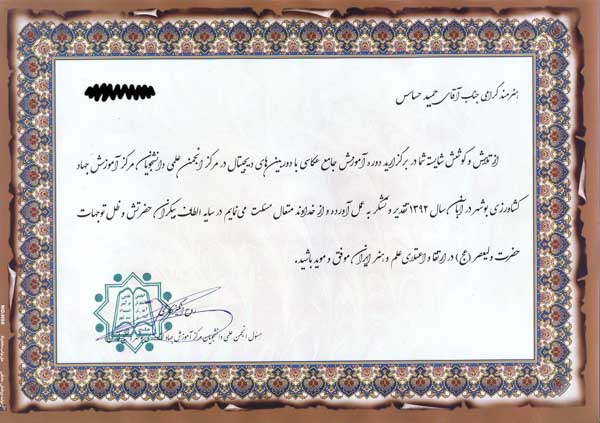 هنرمند گرامی جناب آقای حمید حساس
از تلاش و کوشش شایسته شما در برگزاری دوره آموزش جامع عکاسی با دوربین های دیجیتال در مرکز انجمن علمی دانشجویان مرکز آموزش جهاد
کشاورزی بوشهر در آبان سال ۱۳۹۲ تقدیر و تشکر به عمل آورده و از خداوند متعال مسئلت می نمایم در سایه الطاف بیکران حضرتش و ظل توجهات
حضرت ولیعصر (عج) در ارتقا و اعتلای علم و هنر ایران موفق و موید باشید.
مسئول انجمن علمی دانشجویان مرکز آموزش جهاد